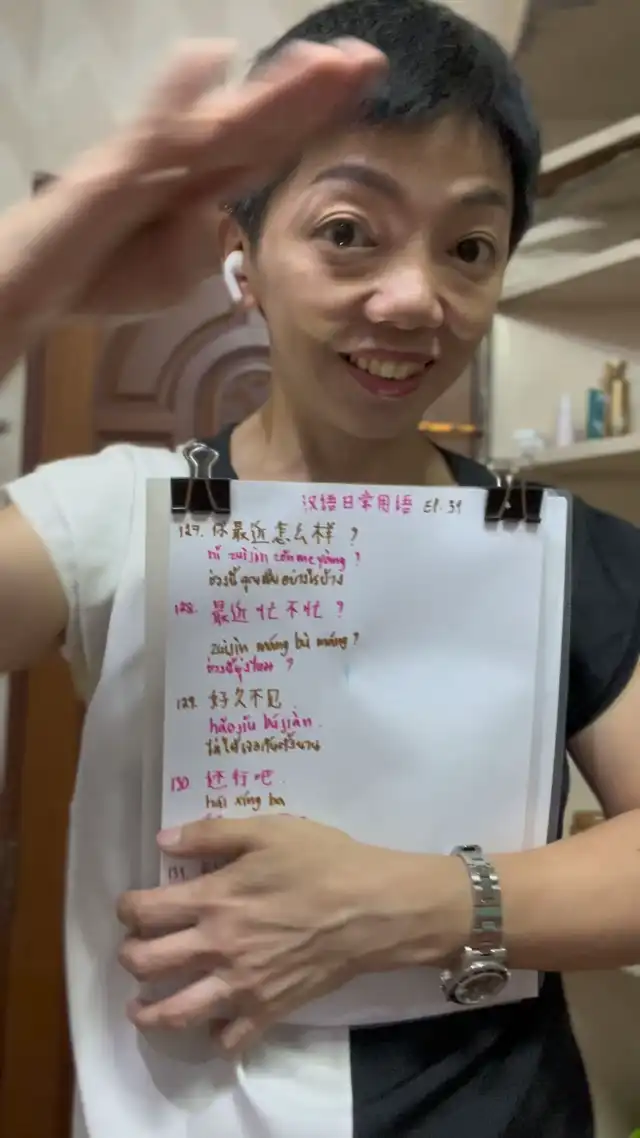 汉语日常用语 EP. 31
127. 你最近怎么样 ?
nǐ zuìjìn zěnmeyàng ?
ช่วงนี้คุณเป็นอย่างไรบ้าง
128. 最近忙不忙 ?
zuìjìn máng bù máng ?
ช่วงนี้ยุ่งไหม ?
129. 好久不见
hǎojiǔ bújiàn.
ไม่ได้เจอกันตั้งนาน
130 还行吧.
hái xíng ba
131.